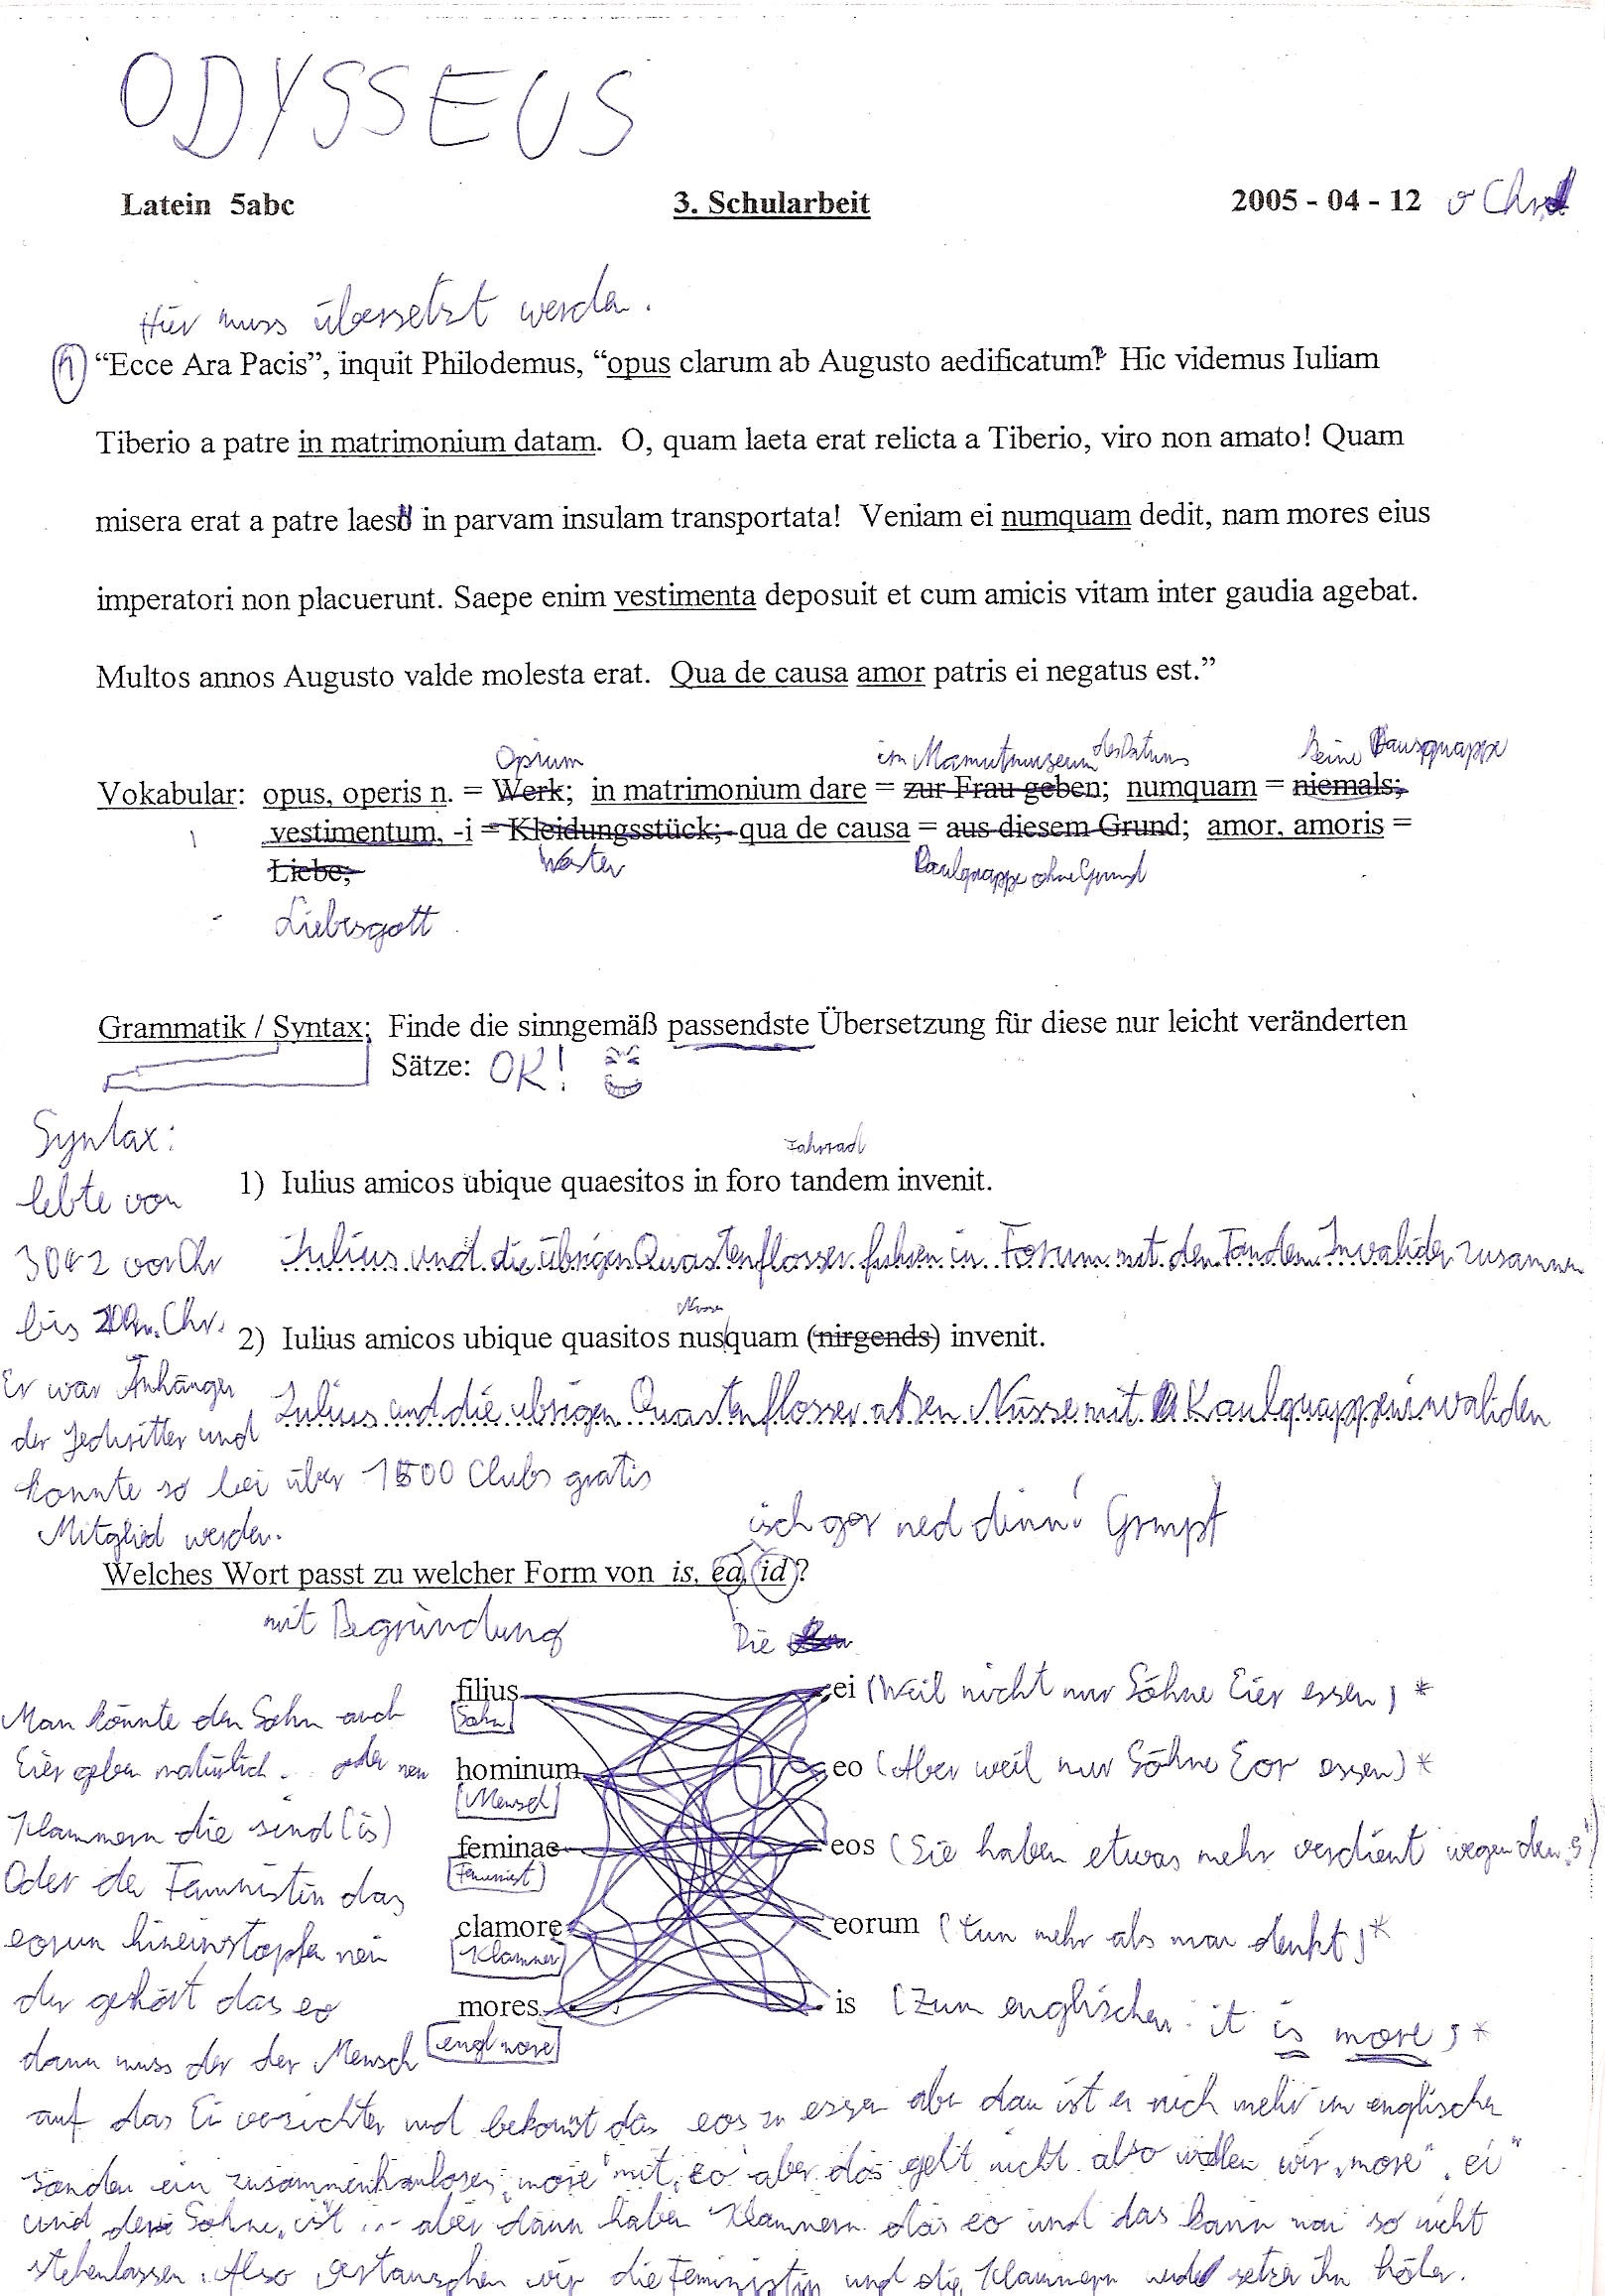 ODYSSEUS
Latein 5abc 3. Schularbeit 2005 - 04 - 12 v Chr
Hier muss übersetzt werden.
1 “Ecce Ara Pacis”, inquit Philodemus, “opus clarum ab Augusto aedificatum? Hic videmus Iuliam
Tiberio a patre in matrimonium datam. O, quam laeta erat relicta a Tiberio, viro non amato! Quam
misera erat a patre laeso in parvam insulam transportata! Veniam ei numquam dedit, nam mores eius
imperatori non placuerunt. Saepe enim vestimenta deposuit et cum amicis vitam inter gaudia agebat.
Multos annos Augusto valde molesta erat. Qua de causa amor patris ei negatus est.”
Opium im Mamutmuseum des Datums keine Kausquappe
Vokabular: opus, operis n. = Werk; in matrimonium dare = zur Frau geben; numquam = niemals;
vestimentum, -i = Kleidungsstück; qua de causa = aus diesem Grund; amor, amoris =
Westen Kaulquappe ohne Grund
Liebe;
Liebesgott
Grammatik / Syntax: Finde die sinngemäß passendste Übersetzung für diese nur leicht veränderten
Sätze: OK!
Syntax:
lebte von
bis
Er war Anhänger
der Jediritter und
konnte so bei über 1500 Clubs gratis
Mitglied werden.
Fahrrad
1) Iulius amicos ubique quaesitos in foro tandem invenit.
Julius und die übrigen Quastenflosser fuhren in Forum mit den Tandem Invaliden zusammen
Nuss
2) Iulius amicos ubique quasitos nusquam (nirgends) invenit.
Julius und die übrigen Quastenflosser aßen Nüsse mit Kaulquappeninvaliden
isch gor ned dinn!
Welches Wort passt zu welcher Form von is, ea, id?
mit Begründung Die
filius ei (Weil nicht nur Söhne Eier essen) *
Sohn
hominum eo (Aber weil nur Söhne Eor essen) *
Mensch
feminae eos (Sie haben etwas mehr verdient wegen dem "s")
Feminist
clamore eorum (tun mehr als man denkt) *
Klammer
mores is (Zum englischen: it is more) *
engl more
Man könnte den Sohn auch
Eier geben natürlich... oder nen
Klammern die sind (is)
Oder der Feministin das
eorum hineinstopfen nein
der gehört das eo
dann muss der der Mensch
auf das Ei verzichten und bekommt das eos zu essen aber dan ist er nich mehr im englischen
sondern ein zusammenhanloses "more" mit "eo" aber das geht nicht also wollen wir "more" "ei"
und den Söhne "ist"... aber dann haben Klammern das eo und das kann man so nicht
stehenlassen. Also vertauschen wir die Feministin und die Klammern und setzen ihn höher.